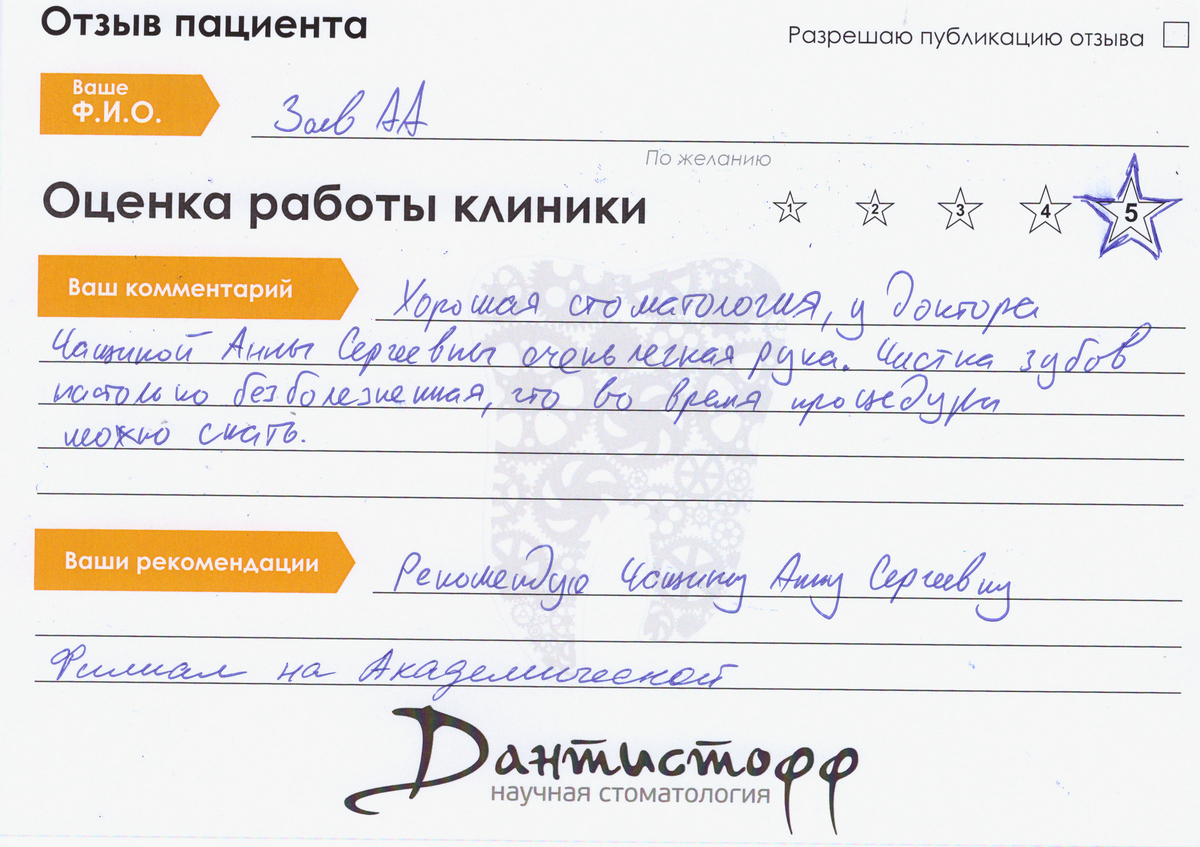 Отзыв пациента
Разрешаю публикацию отзыва
Ваше
Ф.И.О.
Заев АА
По желанию
Оценка работы клиники
1 2 3 4 5
Ваш комментарий
Хорошая стоматология, у доктора
Чащиной Анны Сергеевны очень легкая рука. Чистка зубов
настолько безболезненная, что во время процедуры
можно спать.
Ваши рекомендации
Рекомендую Чащину Анну Сергеевну
Филиал на Академической
Дантистофф
научная стоматология